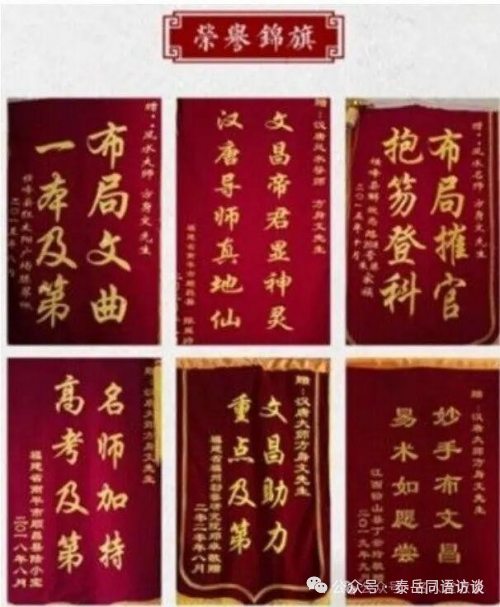 榮譽錦旗
赠：风水大师 方身文先生
布局文曲
一本及第
二〇一五年八月
赠：汉唐风水大师 方身文先生
文昌帝君显神灵
汉唐导师真地仙
赠：风水名师 方身文先生
布局摧官
抱笏登科
二〇一五年十月
赠：汉唐大师方身文先生
名师加持
高考及第
福建省南平市顺昌县
二〇一八年八月
赠：汉唐大师方身文先生
文昌助力
重点及第
二〇二〇年八月
赠：汉唐大师方身文先生
妙手布文昌
易术如愿尝
江西铅山县丁
公众号：泰岳同语访谈